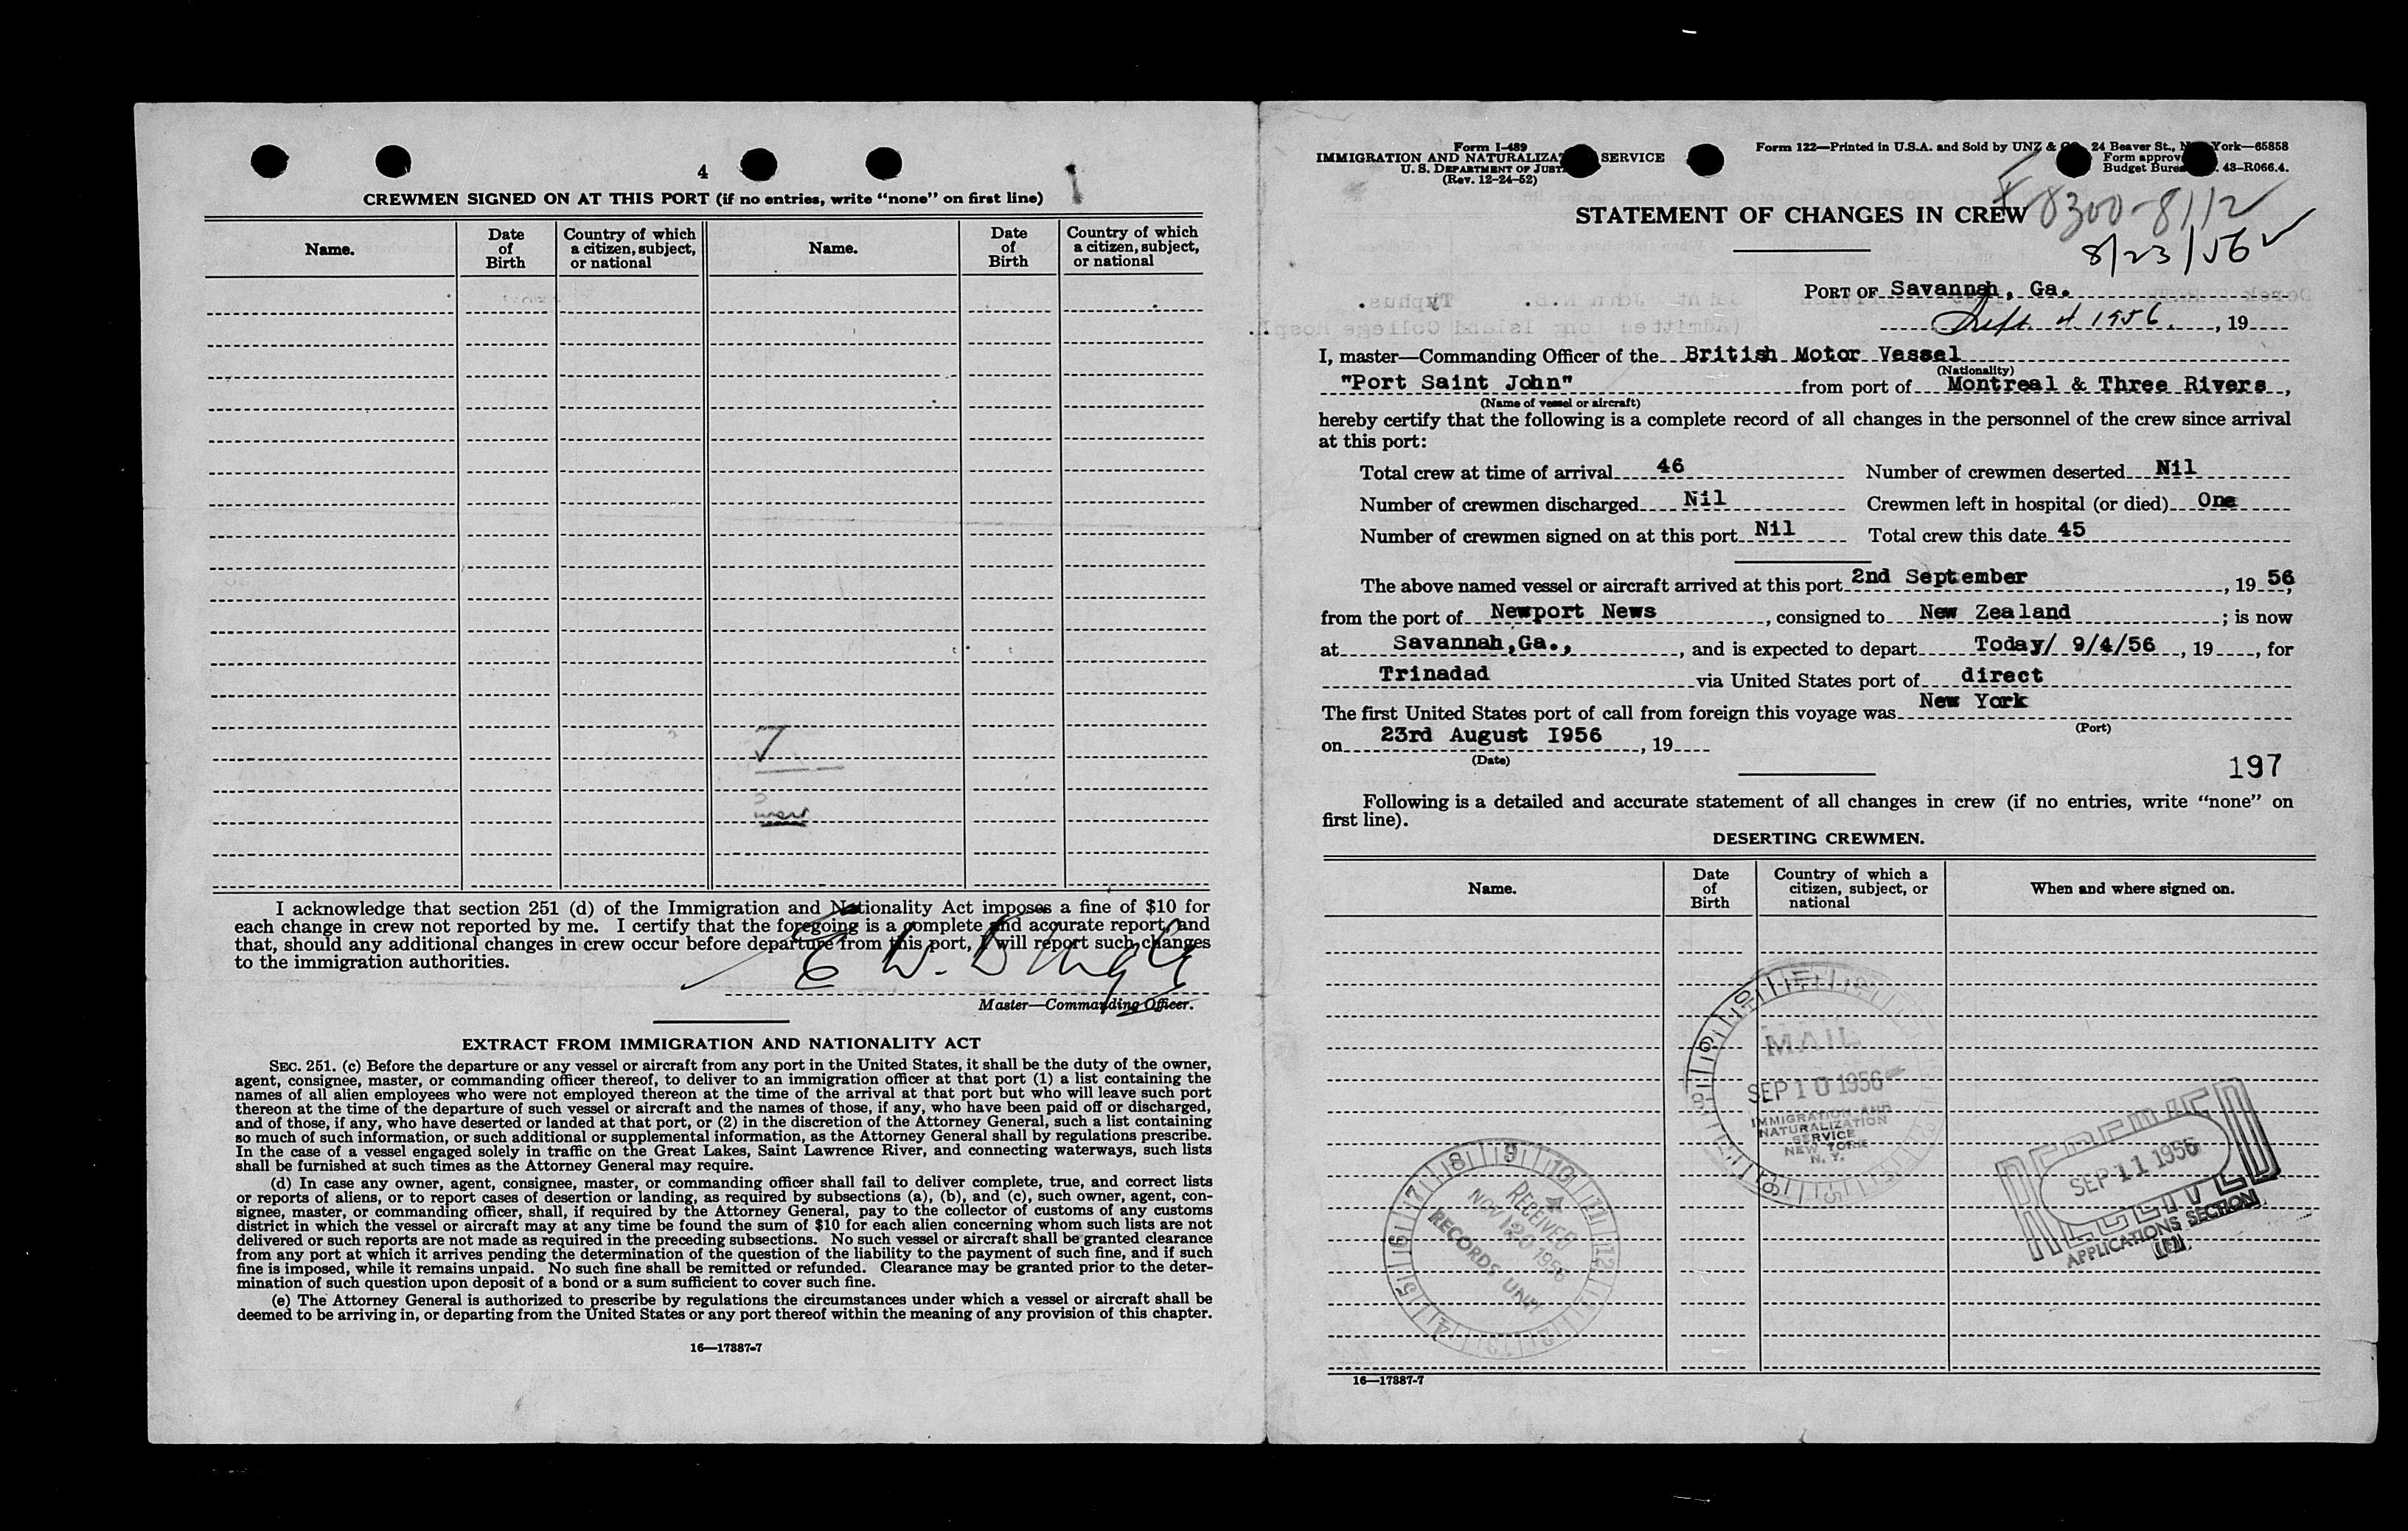 4
CREWMEN SIGNED ON AT THIS PORT (if no entries, write “none” on first line)
Name. Date of Birth Country of which a citizen, subject, or national Name. Date of Birth Country of which a citizen, subject, or national
I acknowledge that section 251 (d) of the Immigration and Nationality Act imposes a fine of $10 for
each change in crew not reported by me. I certify that the foregoing is a complete and accurate report, and
that, should any additional changes in crew occur before departure from this port, I will report such changes
to the immigration authorities.
E W.
Master—Commanding Officer.
EXTRACT FROM IMMIGRATION AND NATIONALITY ACT
SEC. 251. (c) Before the departure or any vessel or aircraft from any port in the United States, it shall be the duty of the owner,
agent, consignee, master, or commanding officer thereof, to deliver to an immigration officer at that port (1) a list containing the
names of all alien employees who were not employed thereon at the time of the arrival at that port but who will leave such port
thereon at the time of the departure of such vessel or aircraft and the names of those, if any, who have been paid off or discharged,
and of those, if any, who have deserted or landed at that port, or (2) in the discretion of the Attorney General, such a list containing
so much of such information, or such additional or supplemental information, as the Attorney General shall by regulations prescribe.
In the case of a vessel engaged solely in traffic on the Great Lakes, Saint Lawrence River, and connecting waterways, such lists
shall be furnished at such times as the Attorney General may require.
(d) In case any owner, agent, consignee, master, or commanding officer shall fail to deliver complete, true, and correct lists
or reports of aliens, or to report cases of desertion or landing, as required by subsections (a), (b), and (c), such owner, agent, con-
signee, master, or commanding officer, shall, if required by the Attorney General, pay to the collector of customs of any customs
district in which the vessel or aircraft may at any time be found the sum of $10 for each alien concerning whom such lists are not
delivered or such reports are not made as required in the preceding subsections. No such vessel or aircraft shall be granted clearance
from any port at which it arrives pending the determination of the question of the liability to the payment of such fine, and if such
fine is imposed, while it remains unpaid. No such fine shall be remitted or refunded. Clearance may be granted prior to the deter-
mination of such question upon deposit of a bond or a sum sufficient to cover such fine.
(e) The Attorney General is authorized to prescribe by regulations the circumstances under which a vessel or aircraft shall be
deemed to be arriving in, or departing from the United States or any port thereof within the meaning of any provision of this chapter.
16—17887-7
Form I-489
IMMIGRATION AND NATURALIZA SERVICE
U. S. DEPARTMENT OF JUST
(Rev. 12-24-52)
Form 122—Printed in U.S.A. and Sold by UNZ & 24 Beaver St., N York—65858
Form approv
Budget Bure . 43-R066.4.
STATEMENT OF CHANGES IN CREW
8300-8112
8/23/56
PORT OF Savannah, Ga.
Sept 4 1956. , 19
I, master—Commanding Officer of the British Motor Vessel
(Nationality)
"Port Saint John" from port of Montreal & Three Rivers,
(Name of vessel or aircraft)
hereby certify that the following is a complete record of all changes in the personnel of the crew since arrival
at this port:
Total crew at time of arrival 46 Number of crewmen deserted Nil
Number of crewmen discharged Nil Crewmen left in hospital (or died) One
Number of crewmen signed on at this port Nil Total crew this date 45
The above named vessel or aircraft arrived at this port 2nd September , 19 56,
from the port of Newport News , consigned to New Zealand ; is now
at Savannah,Ga., , and is expected to depart Today/ 9/4/56 , 19 , for
Trinadad via United States port of direct
The first United States port of call from foreign this voyage was New York
(Port)
on 23rd August I956 , 19
(Date)
197
Following is a detailed and accurate statement of all changes in crew (if no entries, write “none” on
first line).
DESERTING CREWMEN.
Name. Date of Birth Country of which a citizen, subject, or national When and where signed on.
MAIL
SEP 10 1956
IMMIGRATION AND
NATURALIZATION
SERVICE
NEW YORK
N. Y.
RECEIVED
SEP 11 1956
APPLICATIONS SECTION
RECEIVED
1956
RECORDS UNIT
16—17887-7